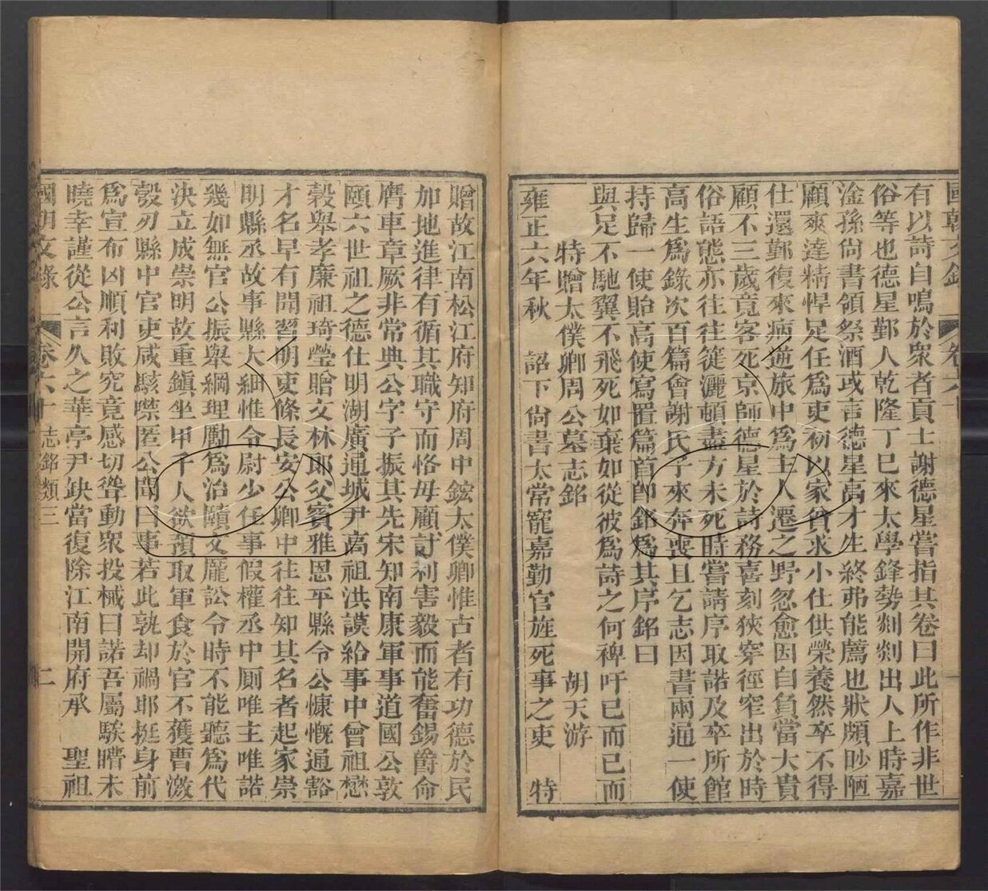 有以詩自鳴於衆者貢士謝德星嘗指其卷曰此所作非世
俗等也德星鄞人乾隆丁巳來太學鋒勢剡剡出人上時嘉
淦孫尚書領祭酒或言德星高才生終弗能薦也狀頗眇陋
顧爽達精悍足任爲吏初以家貧求小仕供榮養然卒不得
仕還鄞復來病逆旅中爲主人遷之野忽愈因自負當大貴
顧不三歲竟客死京師德星於詩務喜刻狹穿徑窄出於時
俗語態亦往往簁灑頓盡方未死時嘗請序取諾及卒所館
高生爲錄次百篇會謝氏子來奔喪且乞志因書兩通一使
持歸一使貽高使寫置篇首卽銘爲其序銘曰
與足不馳翼不飛死如棄如從彼爲詩之何裨吁已而已而
特贈太僕卿周公墓志銘 胡天游
雍正六年秋 詔下尚書太常寵嘉勤官旌死事之吏 特
贈故江南松江府知府周中鋐太僕卿惟古者有功德於民
加地進律有循其職守而恪毋顧計利害毅而能奮錫爵命
膺車章厥非常典公字子振其先宋知南康軍事道國公敦
頤六世祖之德仕明湖廣通城尹高祖洪謨給事中曾祖懋
穀舉孝廉祖琦瑩贈文林郎父賓雅恩平縣令公慷慨通豁
才名早有聞習明吏條長安公卿中往往知其名者起家崇
明縣丞故事縣大細惟令尉少任事假權丞中厠唯主唯諾
幾如無官公振舉綱理勵爲治賾文厖訟令時不能聽爲代
決立成崇明故重鎭坐甲千人欲預取軍食於官不獲曹激
彀刃縣中官吏咸駭噤匿公聞曰事若此孰却禍耶挺身前
爲宣布凶順利敗究竟感切聳動衆投械曰諾吾屬騃瞢未
曉幸謹從公言久之華亭尹缺當復除江南開府承 聖祖
國朝文錄 卷六十 志銘類三 二